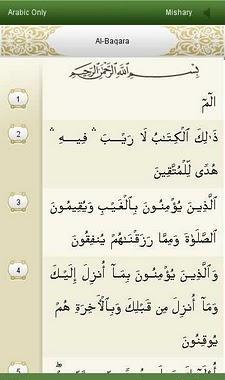 Arabic Only Mishary
Al-Baqara
بِسْمِ ٱللَّهِ ٱلرَّحْمَٰنِ ٱلرَّحِيمِ
1 الٓمٓ
2 ذَٰلِكَ ٱلْكِتَٰبُ لَا رَيْبَ ۛ فِيهِ ۛ
هُدًى لِّلْمُتَّقِينَ
3 ٱلَّذِينَ يُؤْمِنُونَ بِٱلْغَيْبِ وَيُقِيمُونَ
ٱلصَّلَوٰةَ وَمِمَّا رَزَقْنَٰهُمْ يُنفِقُونَ
4 وَٱلَّذِينَ يُؤْمِنُونَ بِمَآ أُنزِلَ إِلَيْكَ
وَمَآ أُنزِلَ مِن قَبْلِكَ وَبِٱلْءَاخِرَةِ هُمْ
يُوقِنُونَ
5